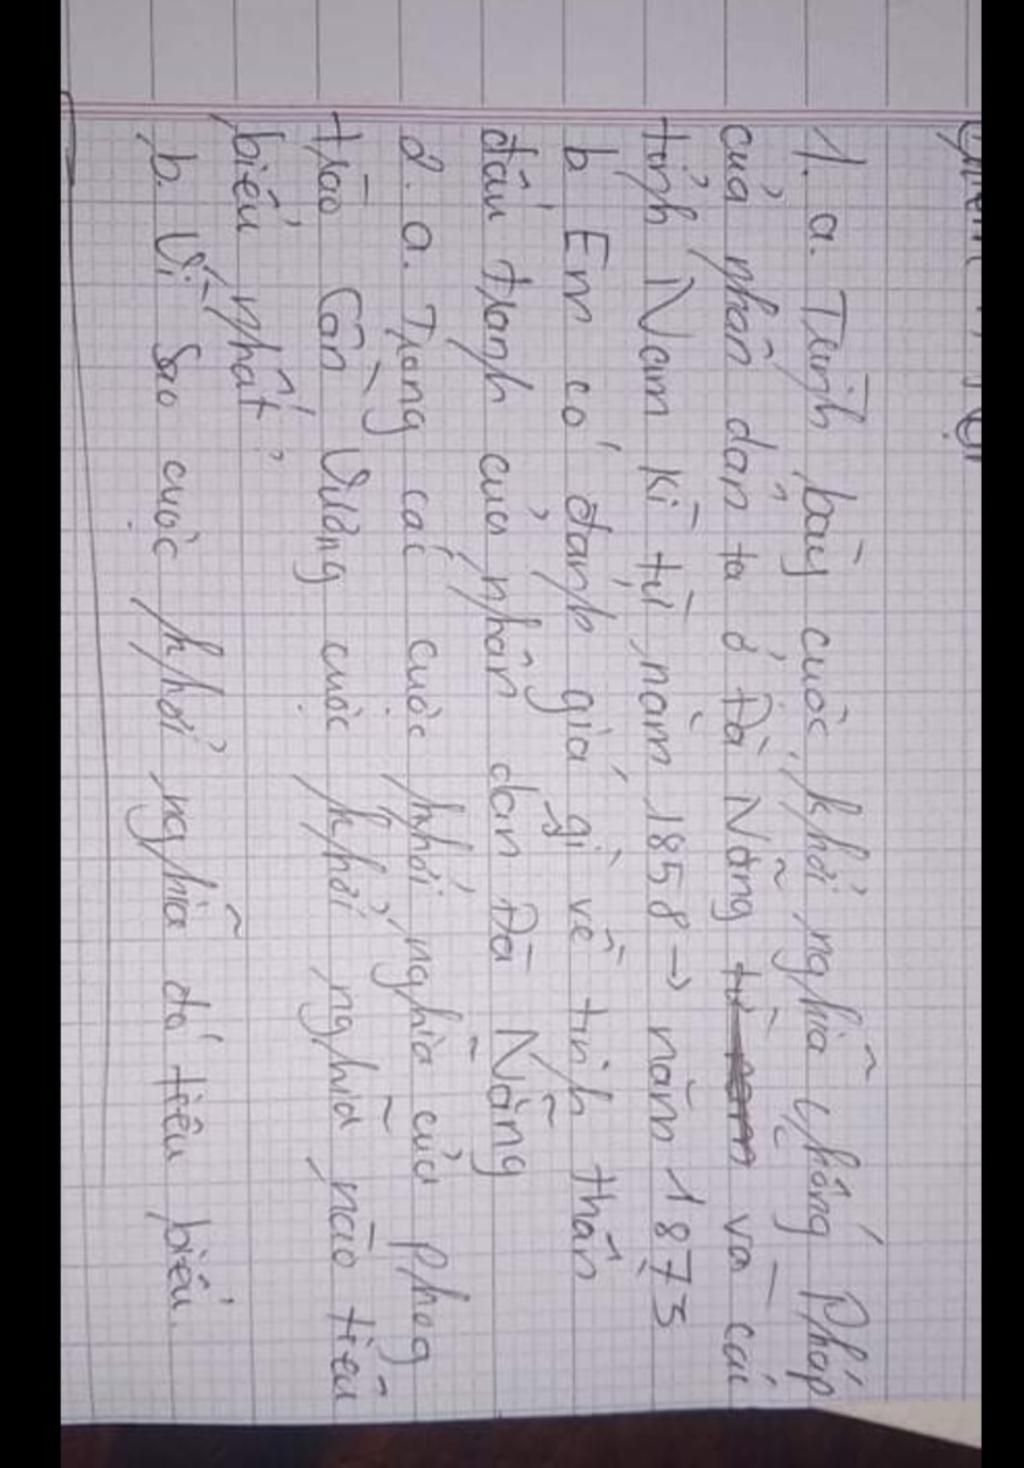 1. a. Trình bày cuộc khởi nghĩa chống Pháp
của nhân dân ta ở Đà Nẵng và các
tỉnh Nam Kì từ năm 1858 → năm 1873
b Em có đánh giá gì về tinh thần
đấu tranh của nhân dân Đà Nẵng
2. a. Trong các cuộc khởi nghĩa của phog
trào Cần Vương cuộc khởi nghĩa nào tiêu
biểu nhất?
b. Vì sao cuộc khởi nghĩa đó tiêu biểu.